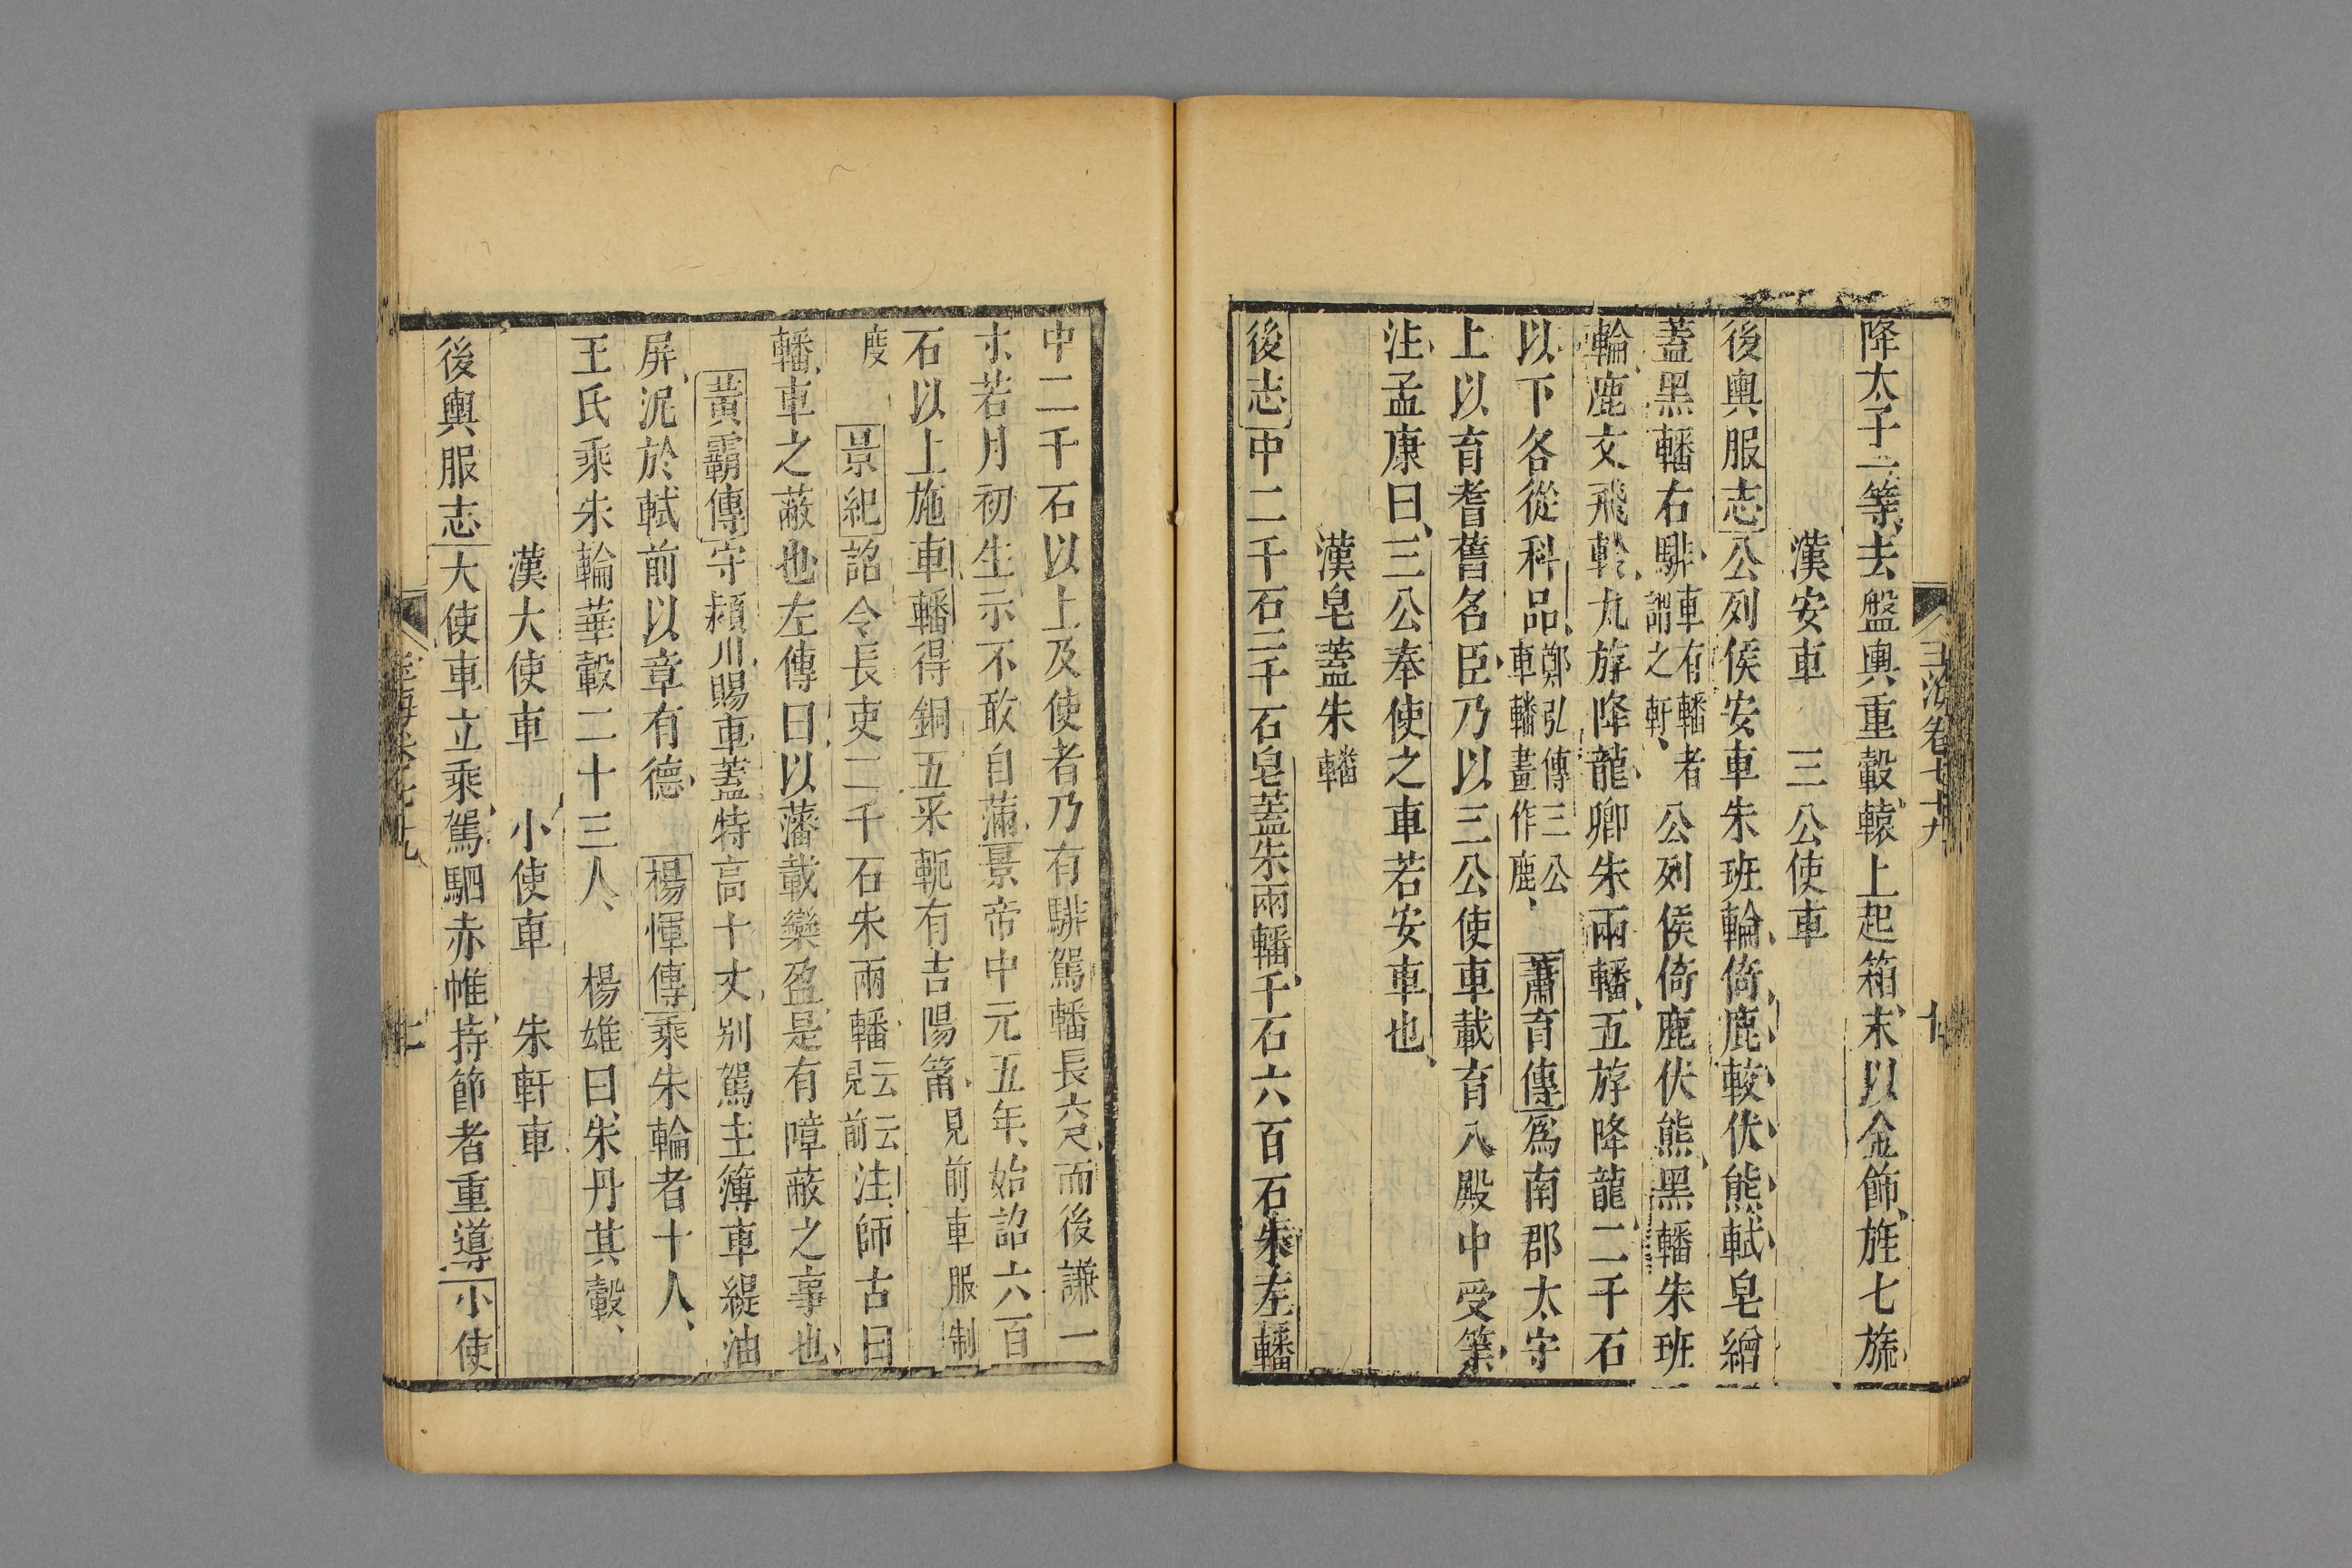 降太子二等去盤輿重轂轅上起箱末以金飾旌七旒
漢安車 三公使車
後輿服志公列侯安車朱班輪倚鹿較伏熊軾皂繒
蓋黑轓右騑車有轓者謂之軒公列侯倚鹿伏熊黑轓朱班
輪鹿文飛軨九斿降龍卿朱兩轓五斿降龍二千石
以下各從科品鄭弘傳三公車轓畫作鹿 蕭育傳爲南郡太守
上以育耆舊名臣乃以三公使車載育入殿中受策
注孟康曰三公奉使之車若安車也
漢皂蓋朱轓
後志中二千石二千石皂蓋朱兩轓千石六百石朱左轓
中二千石以上及使者乃有騑駕轓長六尺而後謙一
寸若月初生示不敢自滿景帝中元五年始詔六百
石以上施車轓得銅五采軛有吉陽筩見前車服制
度 景紀詔令長吏二千石朱兩轓云云見前注師古曰
轓車之蔽也左傳曰以藩載欒盈是有障蔽之事也
黃霸傳守潁川賜車蓋特高十丈別駕主簿車緹油
屏泥於軾前以章有德 楊惲傳乘朱輪者十人
王氏乘朱輪華轂二十三人 楊雄曰朱丹其轂
漢大使車 小使車 朱軒車
後輿服志大使車立乘駕駟赤帷持節者重導小使